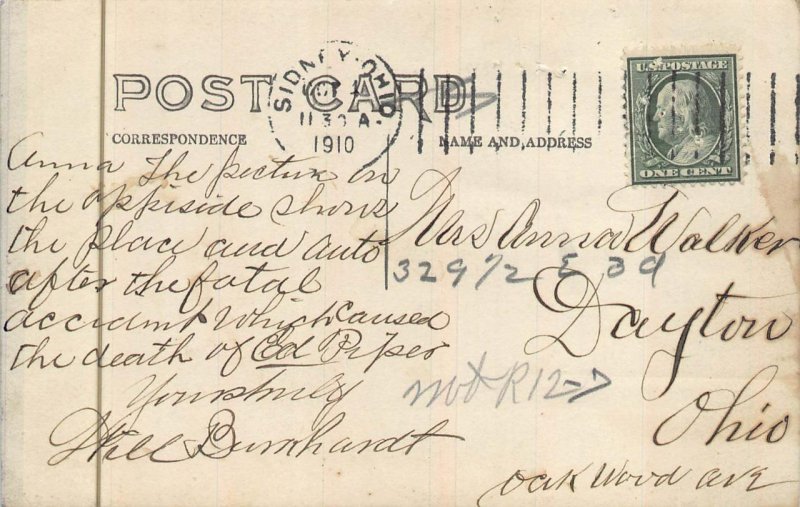 POST CARD
SIDNEY, OHIO.
OCT
11 30 A.
1910
U.S. POSTAGE
ONE CENT
CORRESPONDENCE
NAME AND ADDRESS
Anna The picture on
the oppiside shows
the place and auto
after the fatal
accident which caused
the death of Ed Piper
Yours truly
Will Burnhardt
Mrs Anna Walker
329 1/2 E 3d
Dayton
Ohio
Oak Wood ave
not R12